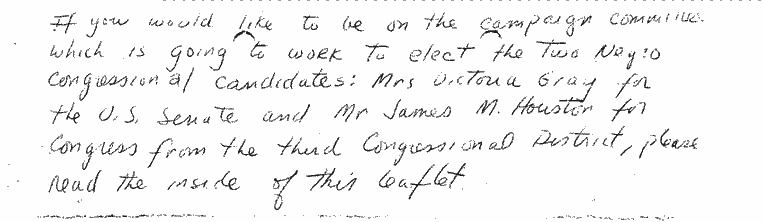 If you would like to be on the campaign committee
which is going to work to elect the Two Negro
Congressional candidates: Mrs Victoria Gray for
the U.S. Senate and Mr James M. Houston for
Congress from the third Congressional District, please
read the inside of this leaflet.